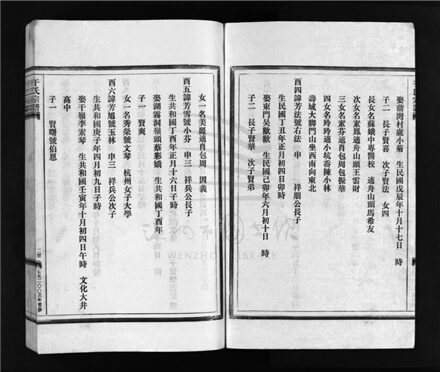 娶蒲灣村盧小菊 生民國戊辰年十月十七日 時
子二 長子賢喜 次子賢法 女四
長女名蘇娥中專醫校 適舟山頭馬希友
次女名素鳳適舟山頭王雲財
三女名素芬適肖包周包振華
四女名玲玲適小坑香陳小林
壽域大脚門山坐西南向東北
酉四諱芳法號右法 申 祥朋公長子
生民國丁丑年正月初四日卯時
娶東門吳歡歡 生民國己卯年六月初十日 時
子二 長子賢華 次子賢弟
女一名美麗適肖包周 因義
酉五諱芳雪號小芬 申三 祥兵公長子
生共和國丁酉年正月十六日子時
娶湖霧洞嶺頭蔡彩嬌 生共和國丁酉年
子一 賢爽
女一名秀榮號文琴 杭州女子大學
酉六諱芳旭號玉林 申三 祥兵公次子
生共和國庚子年四月初九日子時
娶干嶺李素琴 生共和國壬寅年十月初四日午時 文化大井
高中
子一 賢曙號伯恩
于氏宗譜